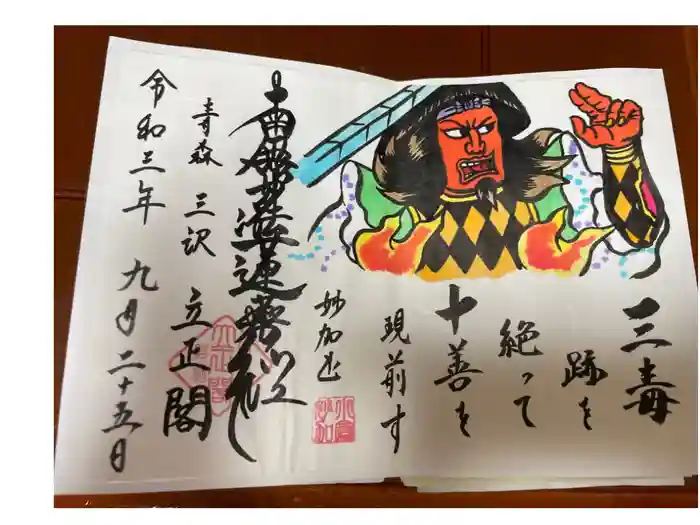 三毒
跡を
絶って
十善を
現前す
妙加
南無妙法蓮華経
青森 三沢 立正閣
令和三年 九月二十五日